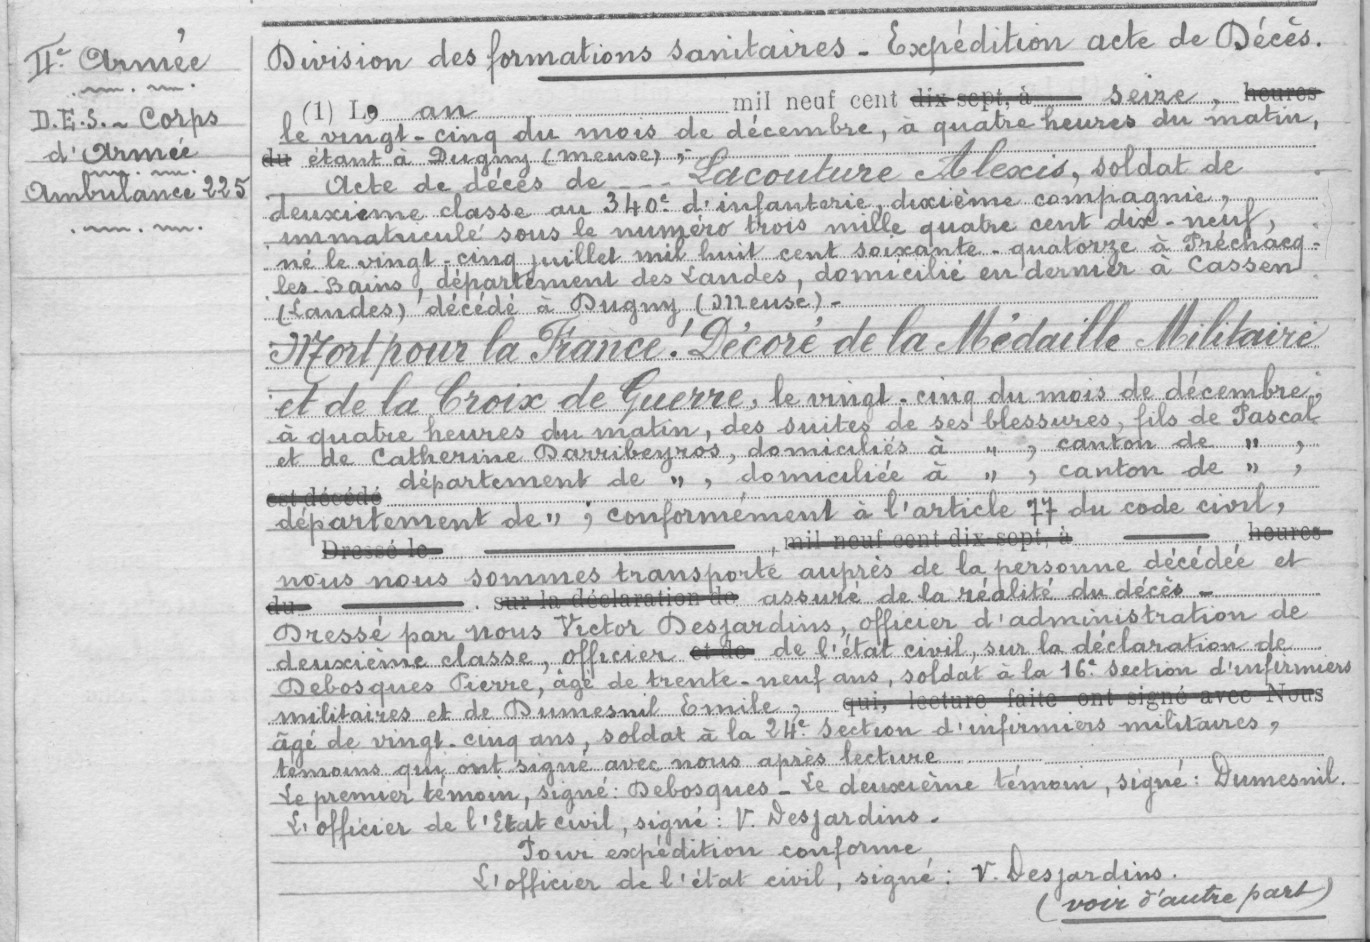 IIe Armée
D.E.S. - Corps
d'Armée
Ambulance 225
Division des formations sanitaires - Expédition acte de Décès.
(1) L, an mil neuf cent dix-sept, à seize, heures
le vingt-cinq du mois de décembre, à quatre heures du matin,
du étant à Dugny (Meuse) ;-
Acte de décès de --- Lacouture Alexis, soldat de
deuxième classe au 340e d'infanterie, dixième compagnie,
immatriculé sous le numéro trois mille quatre cent dix-neuf,
né le vingt-cinq juillet mil huit cent soixante-quatorze à Préchacq-
les-Bains, département des Landes, domicilié en dernier à Cassen
(Landes) décédé à Dugny (Meuse) -
Mort pour la France! Décoré de la Médaille Militaire
et de la Croix de Guerre, le vingt-cinq du mois de décembre,
à quatre heures du matin, des suites de ses blessures, fils de Pascal
et de Catherine Darribeyros, domiciliés à " , canton de " ,
département de " , domiciliée à " , canton de " ,
est décédé
département de " ; conformément à l'article 77 du code civil,
Dressé le , mil neuf cent dix-sept, à heures
nous nous sommes transporté auprès de la personne décédée et
du . sur la déclaration de assuré de la réalité du décès -
Dressé par nous Victor Desjardins, officier d'administration de
deuxième classe, officier et de de l'état civil, sur la déclaration de
Debosques Pierre, âgé de trente-neuf ans, soldat à la 16e section d'infirmiers
militaires et de Dumesnil Emile, qui, lecture faite ont signé avec Nous
âgé de vingt-cinq ans, soldat à la 24e section d'infirmiers militaires,
témoins qui ont signé avec nous après lecture
Le premier témoin, signé: Debosques - Le deuxième témoin, signé: Dumesnil.
L'officier de l'Etat civil, signé: V. Desjardins.
Pour expédition conforme
L'officier de l'état civil, signé: V. Desjardins.
(voir d'autre part)